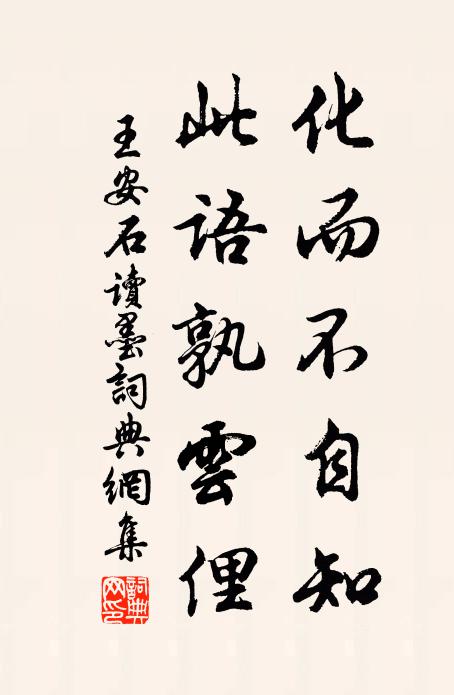 化而不自知
此語孰雲俚
王安石讀墨詞典網集
詞典網印